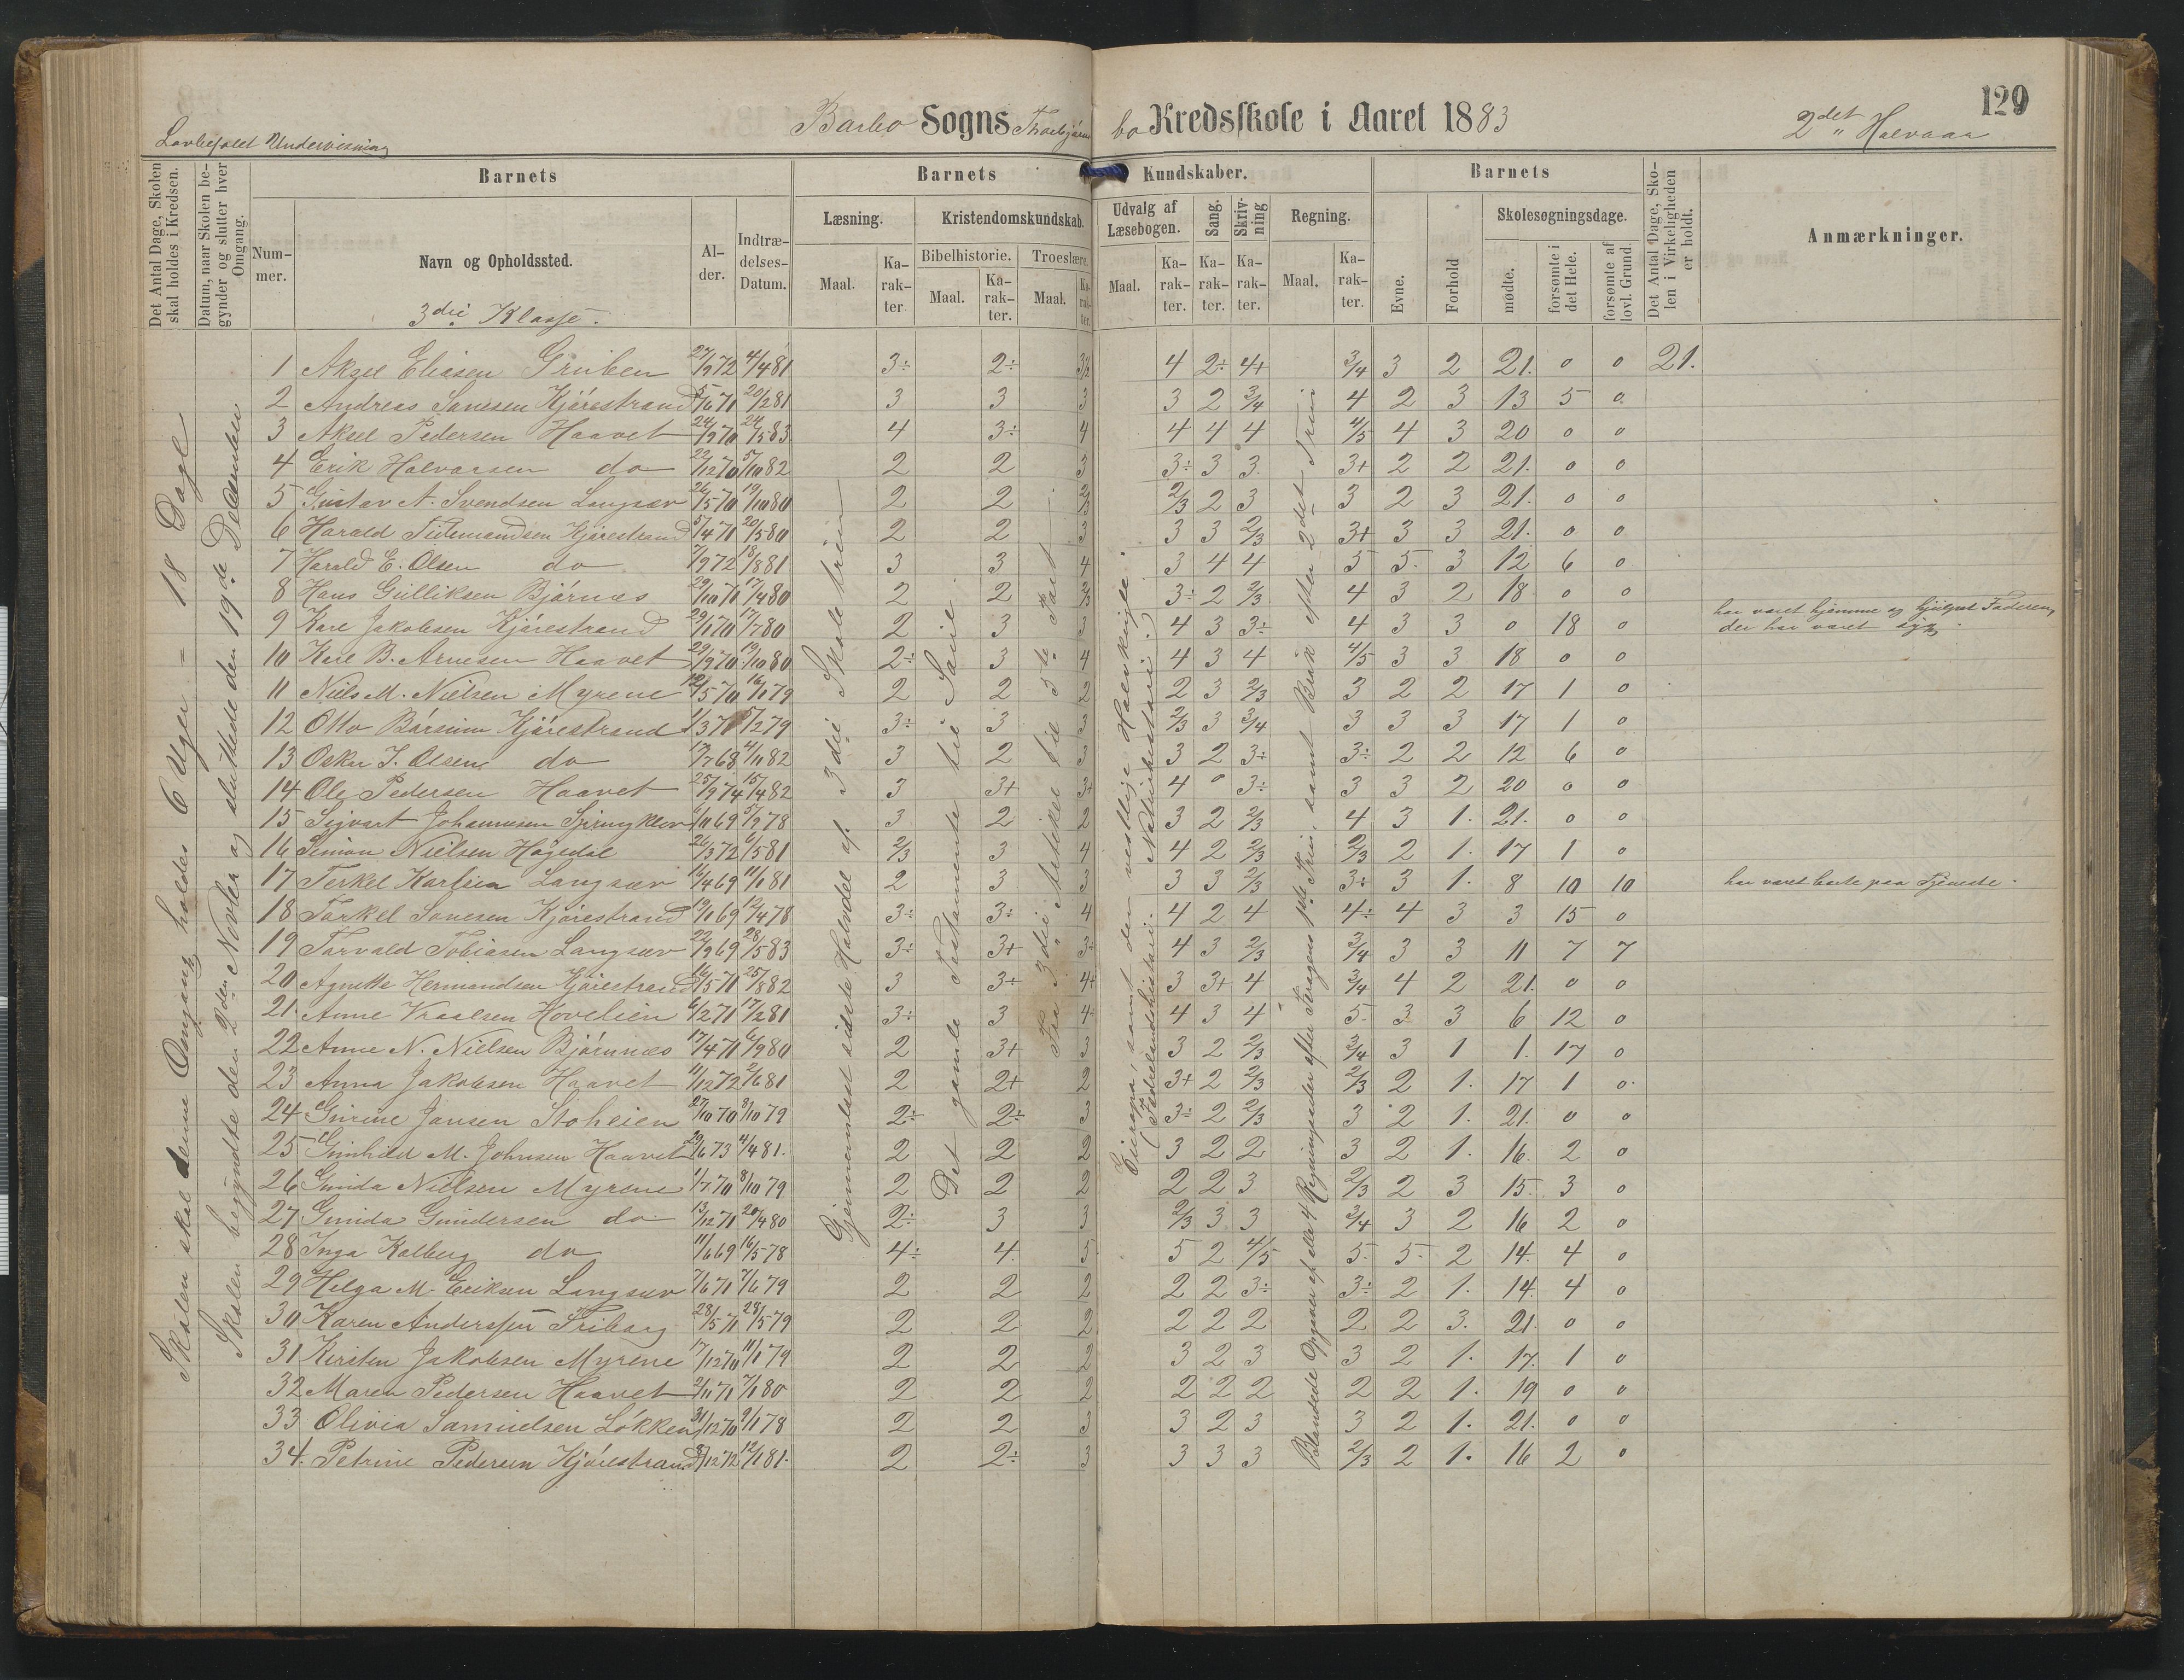 129
Barbo Sogns Thorbjørnsbo Kredsskole i Aaret 1883
2det Halvaar
Lovbefalet Undervisning
Det Antal Dage, Skolen skal holdes i Kredsen.
Datum, naar Skolen begynder og slutter hver Omgang.
Barnets
Nummer.
Navn og Opholdssted.
3die Klasse.
Alder.
Indtrædelses-Datum.
Barnets Kundskaber.
Læsning.
Maal.
Karakter
Kristendomskundskab.
Bibelhistorie.
Maal.
Karakter.
Troeslære.
Maal.
Karakter.
Udvalg af Læsebogen.
Maal.
Karakter.
Sang.
Karakter.
Skrivning
Karakter.
Regning.
Maal.
Karakter.
Barnets
Evne.
Forhold
Skolesøgningsdage.
mødte.
forsømte i det Hele.
forsømte af lovl. Grund.
Det Antal Dage, Skolen i Virkeligheden er holdt.
Anmærkninger.
Skolen skal denne Omgang holdes 6 Uger = 18 Dage
Skolen begyndte den 2den Novber og sluttede den 19de December
Gjennemlæst sidste Halvdel af 3die Skoletrin
Det gamle Testamente til Saul
Fra 3die Artikel til 5te Part
Europa, samt den vestlige Halvkugle.
(Fædrelandshistorie. Naturhistorie.)
Blandede Opgaver af alle 4 Regningsarter efter Kragens 1ste Trin, samt Brøk efter 2det Trin
1 Aksel Eliasen Gruben 27/9 72 4/4 81 3÷ 2÷ 3/2 4 2÷ 4+ 3/4 3 2 21. 0 0 21.
2 Andreas Sanesen Kjørestrand 5/6 71 20/2 81 3 3 3 3 2 3/4 4 2 3 13 5 0
3 Aksel Pedersen Haavet 24/9 70 24/5 83 4 3÷ 4 4 4 4 4/5 4 3 20 0 0
4 Erik Halvorsen do 22/12 70 5/10 82 2 2 3 3÷ 3 3 3+ 2 2 21. 0 0
5 Gustav A. Svendsen Langsæv 26/5 70 19/10 80 2 2 2/3 2/3 2 3 3 2 3 21. 0 0
6 Harald Tidemandsen Kjørestrand 5/4 71 20/5 80 2 2 3 3 3 2/3 3+ 3 3 21. 0 0
7 Harald E. Olsen do 7/9 72 18/8 81 3 3 4 3 4 4 5 5. 3 12 6 0
8 Hans Gulliksen Bjørnæs 29/10 71 17/4 80 2 2 2/3 3÷ 2 2/3 4 3 2 18 0 0
9 Karl Jakobsen Kjørestrand 29/1 70 17/7 80 2 3 3 4 3 3÷ 4 3 3 0 18 0 har været hjemme og hjulpet Faderen, der har været syg.
10 Karl B. Arnesen Haavet 29/9 70 19/10 80 2÷ 3 4 4 3 4 4/5 3 3 18 0 0
11 Niels M. Nielsen Myrene 12/5 70 16/1 79 2 2 2 2 3 2/3 3 2 2 17 1 0
12 Otto Børsum Kjørestrand 1/3 71 5/2 79 3÷ 3 3 2/3 3 3/4 3 3 3 17 1 0
13 Oskar J. Olsen do 17/7 68 4/11 82 3 2 3 3 2 3÷ 3÷ 2 2 12 6 0
14 Ole Pedersen Haavet 25/9 74 15/4 82 3 3+ 3+ 4 0 3÷ 3 3 2 20 0 0
15 Sigvart Johannesen Springklev 6/10 69 5/9 78 3 2 2 3 2 2/3 4 3 1. 21. 0 0
16 Simon Nielsen Høgedal 26/3 72 6/5 81 2/3 3 4 4 2 2/3 2/3 2 1. 17 1 0
17 Terkel Karlsen Langsæv 16/4 69 11/1 81 2 3 3 3 3 2/3 3÷ 3 1. 8 10 10 har været borte paa Tjeneste.
18 Tarkel Sanesen Kjørestrand 19/1 69 12/4 78 3÷ 3÷ 4 4 2 4 4÷ 4 3 3 15 0
19 Torvald Tobiasen Langsæv 22/9 69 28/5 83 3÷ 3+ 3+ 4 3 2/3 3/4 3 3 11 7 7
20 Agnette Hermandsen Kjørestrand 16/5 71 25/8 82 3 3+ 4+ 3 3+ 4 3/4 4 2 21. 0 0
21. Anne Knudsen Hovelien 6/2 71 17/2 81 3÷ 3 4 4 3 4 5. 3 3 6 12 0
22 Anne N. Nielsen Bjørnnæs 17/4 71 6/9 80 2 3+ 3 3 2 2/3 3/4 3 1 1. 17 0
23 Anna Jakobsen Haavet 11/12 72 2/6 81 2 2+ 2 3+ 2 2/3 2/3 2 1. 17 1 0
24 Gurine Jansen Stoheien 27/10 70 8/10 79 2÷ 2÷ 3 3÷ 2 2/3 3 2 1. 21. 0 0
25 Gunhild M. Johnsen Haavet 29/6 73 4/4 81. 2 2 2 3 2 2 3 2 1. 16. 2 0
26 Gunda Nielsen Myrene 1/7 70 8/10 79 2 2 2 2 2 3 2/3 2 3 15. 3 0
27 Gunda Gundersen do 13/12 71 20/4 80 2÷ 3 3 2/3 3 3 3/4 3 2 16 2 0
28 Inga Kalberg do 11/6 69 16/5 78 4÷ 4. 5 5 2 4/5 5. 5. 2 14. 4 0
29 Helga M. Eriksen Langsæv 7/6 71 7/6 79 2 2 2 2 2 3÷ 3÷ 2 1. 14. 4 0
30 Karen Anderssen Friberg 28/5 71 28/5 79 2 2 2 2 2 2 2 2 3. 21. 0 0
31 Kirsten Jakobsen Myrene 17/12 70 11/1 79 2 2 2 3 2 3 3 2 1. 17. 1 0
32 Maren Pedersen Haavet 2/11 71 7/1 80 2 2 2 2 2 2 2 2 1. 19 0 0
33 Olivia Samuelsen Løkken 31/12 70 9/1 78 2 2 3 3 2 3 3 2 1. 21. 0 0
34. Petrine Pedersen Kjørestrand 8/12 72 12/1 81. 2 2÷ 3 3 3 3 2/3 2 1. 16 2 0